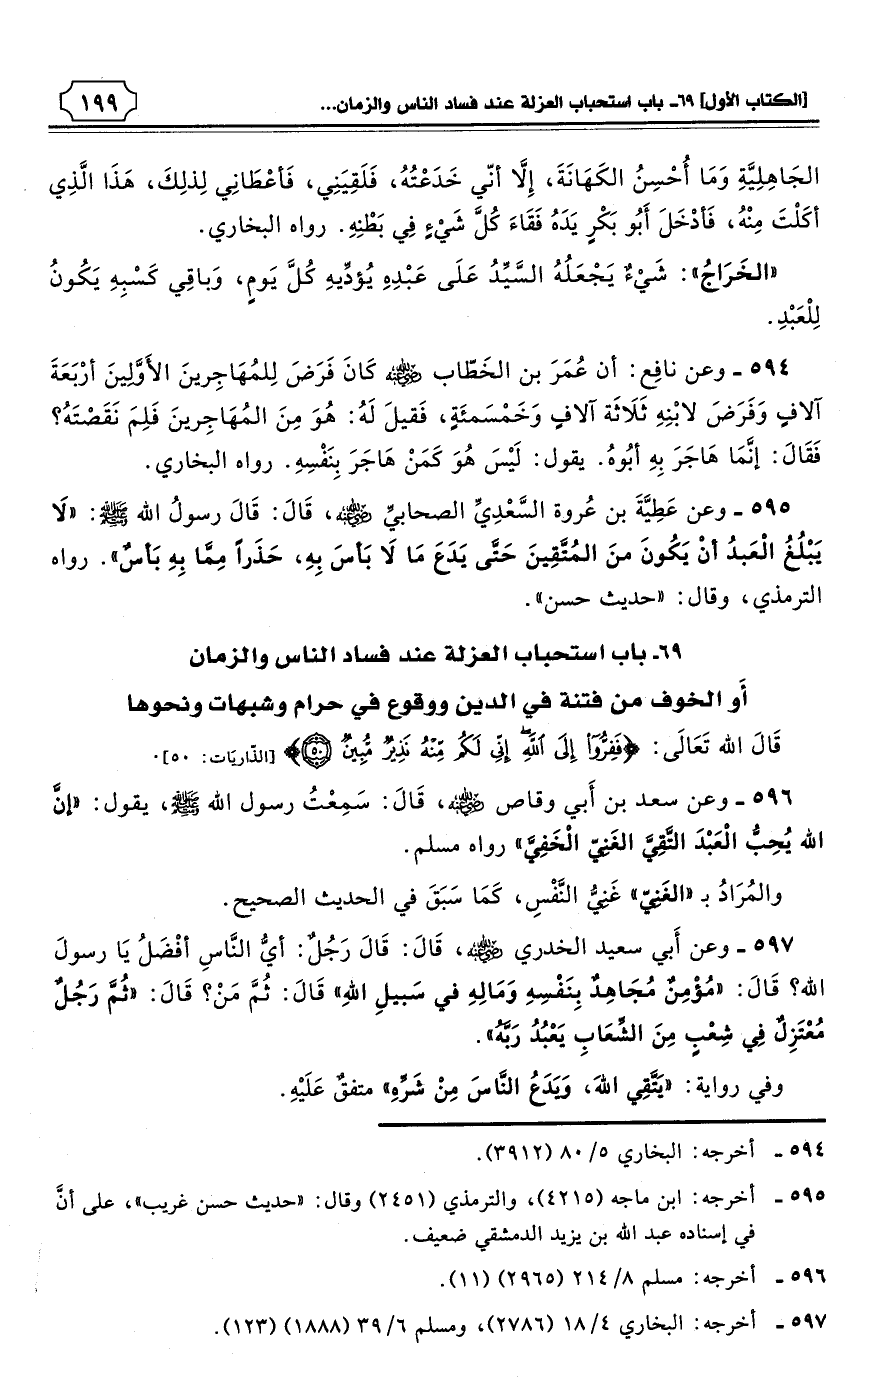 [الكتاب الأول] ٦٩ـ باب استحباب العزلة عند فساد الناس والزمان...
١٩٩
الجَاهِليَّةِ وَمَا أُحْسِنُ الكَهَانَةَ، إِلَّا أنّي خَدَعْتُهُ، فَلَقِيَنِي، فَأعْطَانِي لِذلِكَ، هَذَا الَّذِي
أكَلْتَ مِنْهُ، فَأدْخَلَ أَبُو بَكْرٍ يَدَهُ فَقَاءَ كُلَّ شَيْءٍ فِي بَطْنِهِ. رواه البخاري.
«الخَرَاجُ»: شَيْءٌ يَجْعَلُهُ السَّيِّدُ عَلَى عَبْدِهِ يُؤدِّيهِ كُلَّ يَومٍ، وَباقِي كَسْبِهِ يَكُونُ
لِلْعَبْدِ.
٥٩٤ ـ وعن نافِع: أن عُمَرَ بن الخَطّاب رضي الله عنه كَانَ فَرَضَ لِلمُهَاجِرينَ الأَوَّلِينَ أرْبَعَةَ
آلافٍ وَفَرَضَ لابْنِهِ ثَلَاثَة آلافٍ وَخَمْسَمئَةٍ، فَقيلَ لَهُ: هُوَ مِنَ المُهَاجِرينَ فَلِمَ نَقَصْتَهُ؟
فَقَالَ: إنَّمَا هَاجَرَ بِهِ أبُوهُ. يقول: لَيْسَ هُوَ كَمَنْ هَاجَرَ بِنَفْسِهِ. رواه البخاري.
٥٩٥ ـ وعن عَطِيَّةَ بن عُروة السَّعْدِيِّ الصحابيِّ رضي الله عنه، قَالَ: قَالَ رسولُ الله ﷺ: «لَا
يَبْلُغُ الْعَبدُ أنْ يَكُونَ منَ المُتَّقِينَ حَتَّى يَدَعَ مَا لَا بَأسَ بِهِ، حَذَراً مِمَّا بِهِ بَأسٌ». رواه
الترمذي، وقال: «حديث حسن».
٦٩ـ باب استحباب العزلة عند فساد الناس والزمان
أَو الخوف من فتنة في الدين ووقوع في حرام وشبهات ونحوها
قَالَ الله تَعَالَى: ﴿فَفِرُّوٓا۟ إِلَى ٱللَّهِۖ إِنِّى لَكُم مِّنْهُ نَذِيرٌ مُّبِينٌ ۝٥٠﴾ [الذّاريَات: ٥٠].
٥٩٦ ـ وعن سعد بن أَبي وقاص رضي الله عنه، قَالَ: سَمِعْتُ رسول الله ﷺ، يقول: «إنَّ
الله يُحِبُّ الْعَبْدَ التَّقِيَّ الغَنِيّ الْخَفِيَّ» رواه مسلم.
والمُرَادُ بـ «الغَنِيّ» غَنِيُّ النَّفْسِ، كَمَا سَبَقَ في الحديث الصحيح.
٥٩٧ ـ وعن أَبي سعيد الخدري رضي الله عنه، قَالَ: قَالَ رَجُلٌ: أيُّ النَّاسِ أفْضَلُ يَا رسولَ
الله؟ قَالَ: «مُؤْمِنٌ مُجَاهِدٌ بِنَفْسِهِ وَمَالِهِ في سَبيلِ اللهِ» قَالَ: ثُمَّ مَنْ؟ قَالَ: «ثُمَّ رَجُلٌ
مُعْتَزِلٌ فِي شِعْبٍ مِنَ الشِّعَابِ يَعْبُدُ رَبَّهُ».
وفي رواية: «يَتَّقِي اللهَ، وَيَدَعُ النَّاسَ مِنْ شَرِّهِ» متفقٌ عَلَيْهِ.
٥٩٤ ـ أخرجه: البخاري ٥/ ٨٠ (٣٩١٢).
٥٩٥ ـ أخرجه: ابن ماجه (٤٢١٥)، والترمذي (٢٤٥١) وقال: «حديث حسن غريب»، على أنَّ
في إسناده عبد الله بن يزيد الدمشقي ضعيف.
٥٩٦ ـ أخرجه: مسلم ٨/ ٢١٤ (٢٩٦٥) (١١).
٥٩٧ ـ أخرجه: البخاري ٤/ ١٨ (٢٧٨٦)، ومسلم ٦/ ٣٩ (١٨٨٨) (١٢٣).